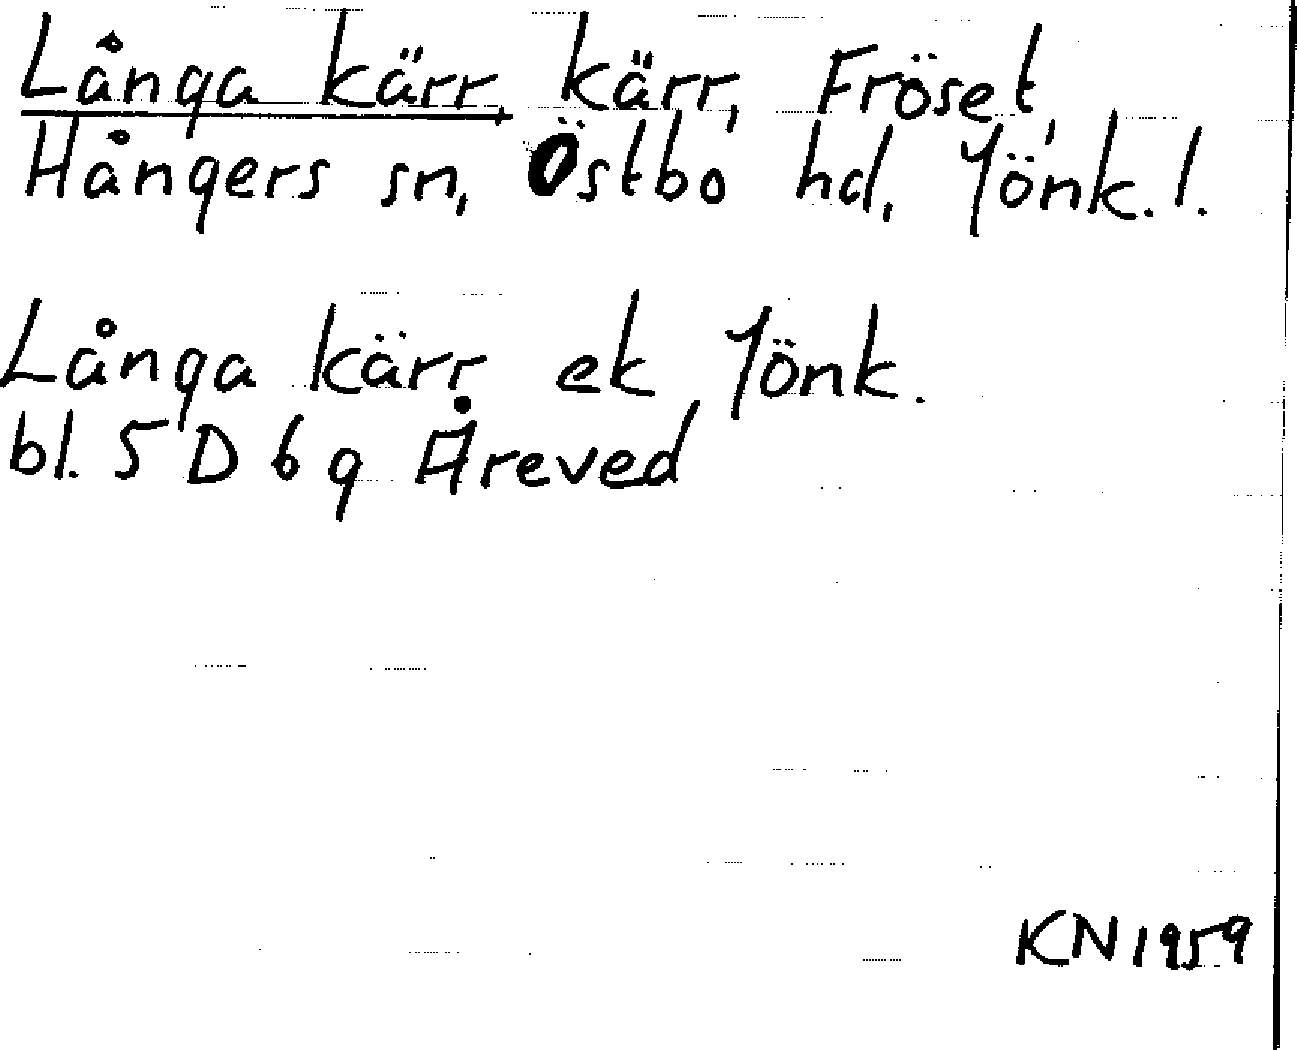 Långa kärr, kärr, Fröset,
Hångers sn, Östbo hd, Jönk. l.
Långa kärr ek Jönk.
bl. 5 D 6 g Åreved
KN 1959